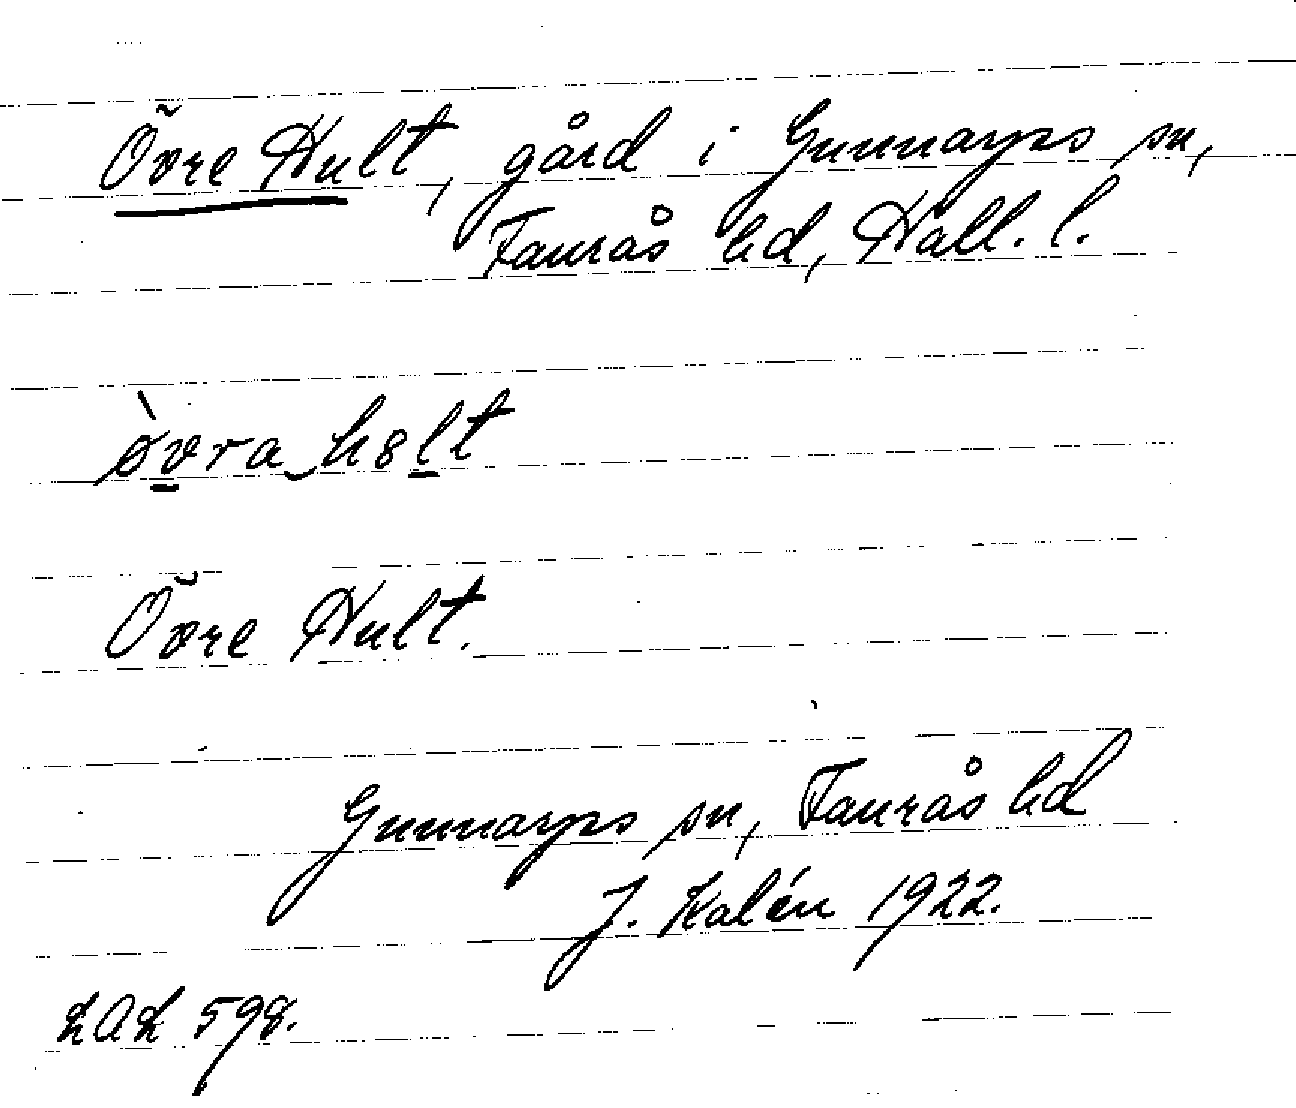 Övre Hult, gård i Gunnarps sn,
Faurås hd, Hall. l.
ø̀vra‿hȣlt
Övre Hult.
Gunnarps sn, Faurås hd
J. Kalén 1922.
LAL 598.